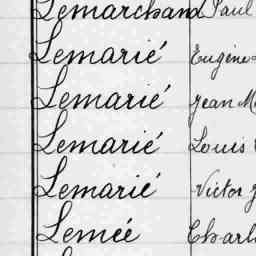 Lemarchand Paul
Lemarié Eugène
Lemarié Jean M
Lemarié Louis
Lemarié Victor J
Lemée Charl